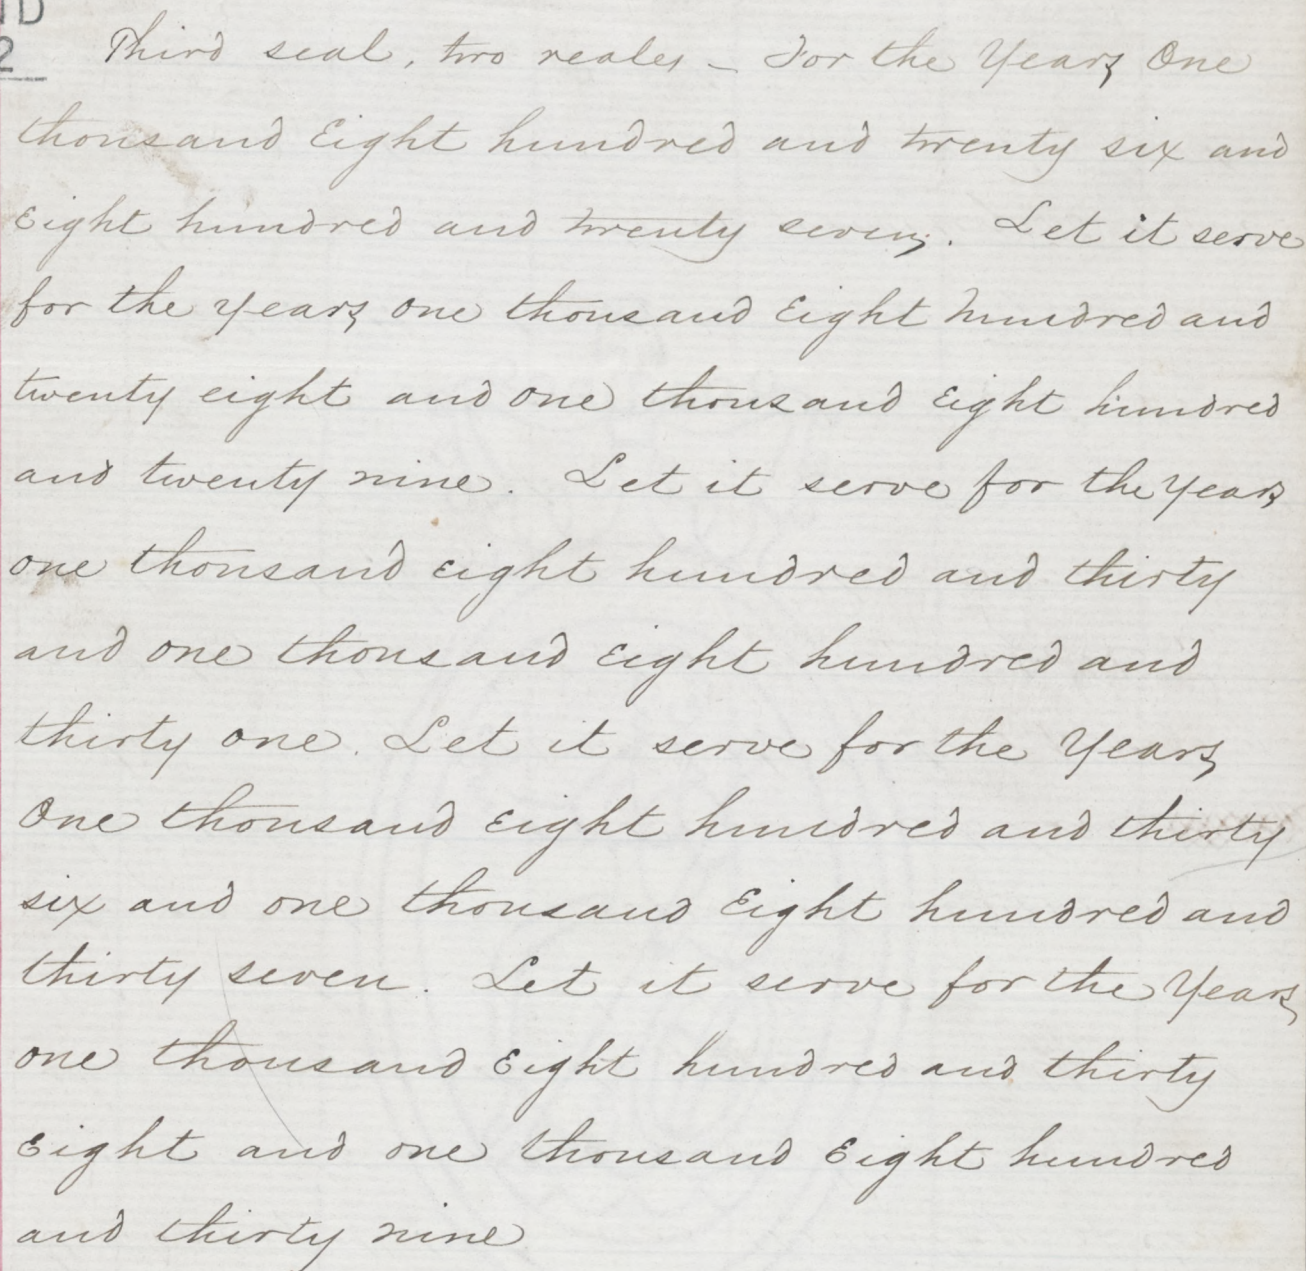 ND
2
Third seal, two reales – For the Years One
thousand Eight hundred and twenty six and
Eight hundred and twenty seven. Let it serve
for the years one thousand Eight hundred and
twenty eight and one thousand Eight hundred
and twenty nine. Let it serve for the Years
one thousand eight hundred and thirty
and one thousand Eight hundred and
thirty one. Let it serve for the Years
One thousand Eight hundred and thirty
six and one thousand Eight hundred and
thirty seven. Let it serve for the Years
one thousand Eight hundred and thirty
Eight and one thousand Eight hundred
and thirty nine